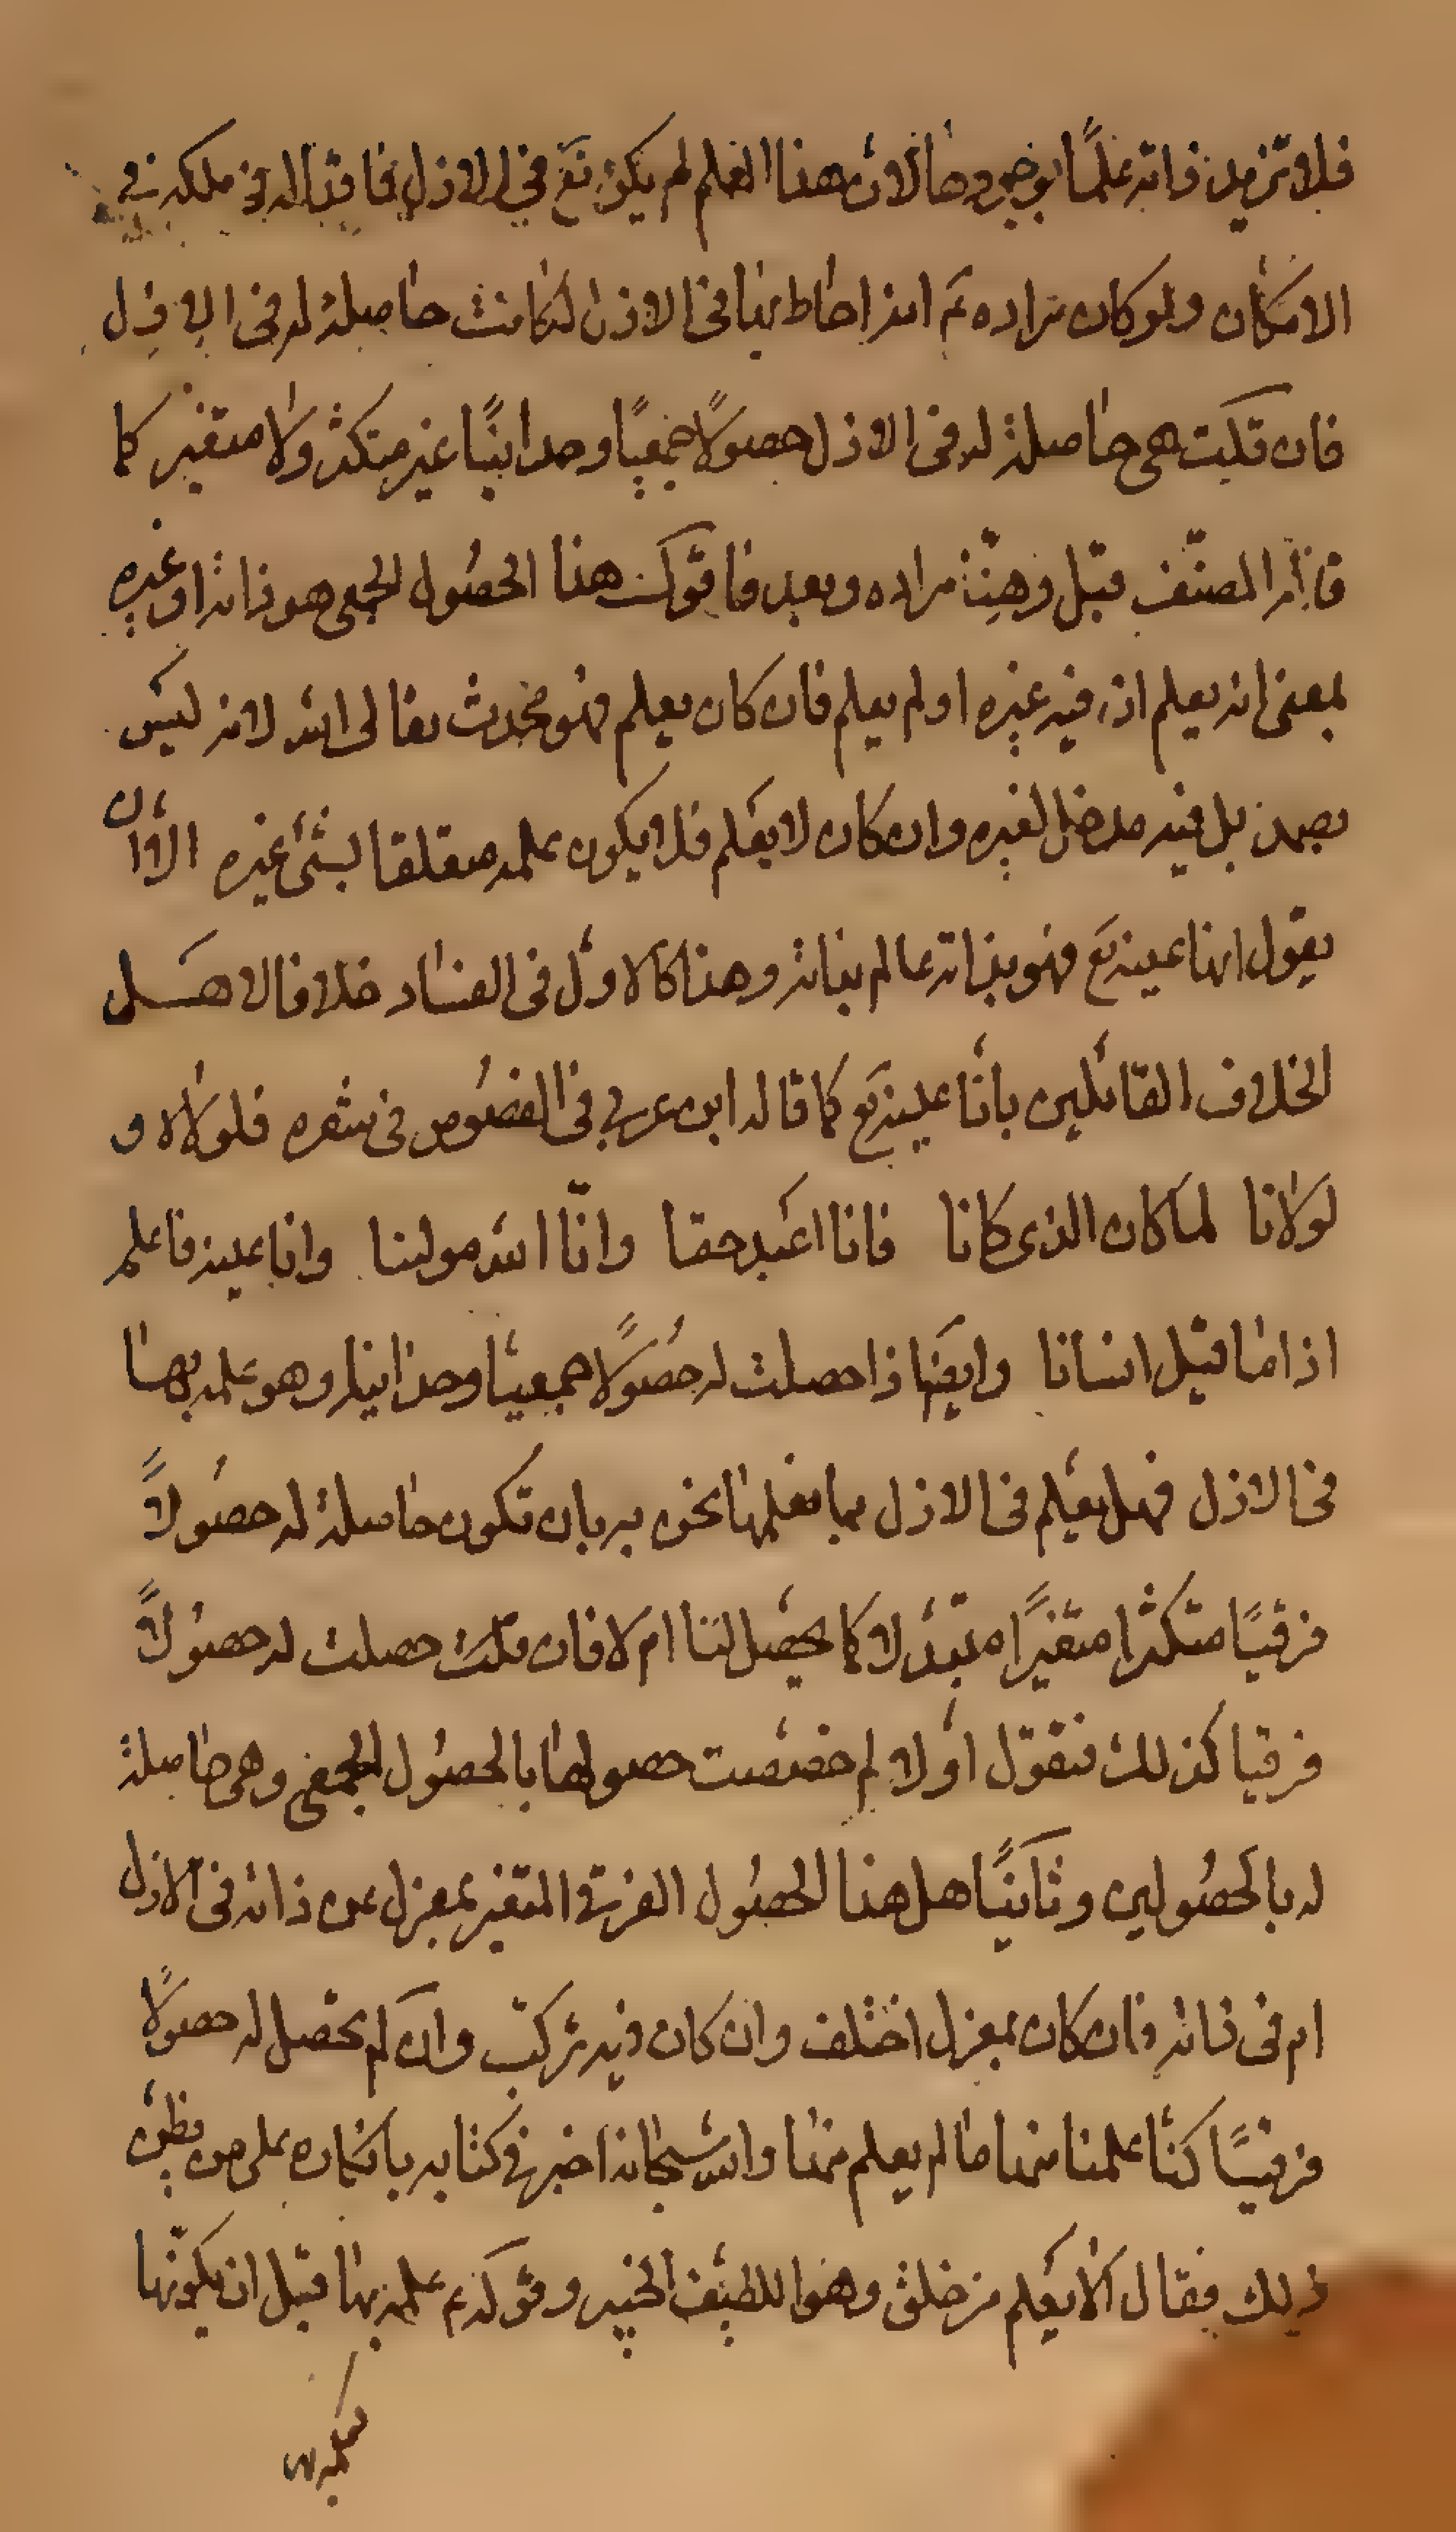 فلا تزيد ذاته علمًا بوجودها لان هذا العلم لم يكن تع في الازل فاقتاله في ملكه في
الامكان ولو كان مراده ثم انه احاط بها في الازل لكانت حاصلة له في الازل
فان قلت هي حاصلة له في الازل حصولًا جمعيًا وحدانيًا غير متكثر ولا متغير كما
قاله المصنف قبل وهنا مراده وبعد فاقول هذا الحصول الجمعي هو ذاته او غيره
بمعنى انه يعلم ان فيه غيره او لم يعلم فان كان يعلم فهو محدث تعالى الله لانه ليس
بصمد بل فيه مدخل لغيره وان كان لا يعلم فلا يكون علمه متعلقا بشئ غيره الا ان
يقول انها عينه تع فهو بذاته عالم بذاته وهذا كالاول في الفساد خلافا لاهل
الخلاف القائلين بانا عينه تع كما قاله ابن عربي في الفصوص في شعره فلولاه و
لولانا لما كان الذي كانا فانا اعبد حقا وانا الله مولينا وانا عينه فاعلم
اذا ما قيل انسانا وايضا اذا حصلت له حصولًا جمعيا وحدانيا وهو علمه بها
في الازل فهل يعلم في الازل ما يعلمها نحن به بان تكون حاصلة له حصولاً
فرقيًا متكثرا متغيرًا متبدلا كما يحصل لنا ام لا فان قلت حصلت له حصولاً
فرقيا كذلك فنقول اولا لم خصصت حصولها بالحصول الجمعي وهي حاصلة
له بالحصولين وثانيًا هل هذا الحصول الفرقي المتغير بمعزل عن ذاته في الازل
ام في ذاته فان كان بمعزل اختلف وان كان فيه تركب وان لم يحصل له حصولًا
فرقيًا كنا علمنا منها ما لم يعلم منها والله سبحانه اخبر في كتابه بانكاره على من يظن
ذلك فقال الا يعلم من خلق وهو اللطيف الخبير وقوله ثم علمه بها قبل ان يكونها